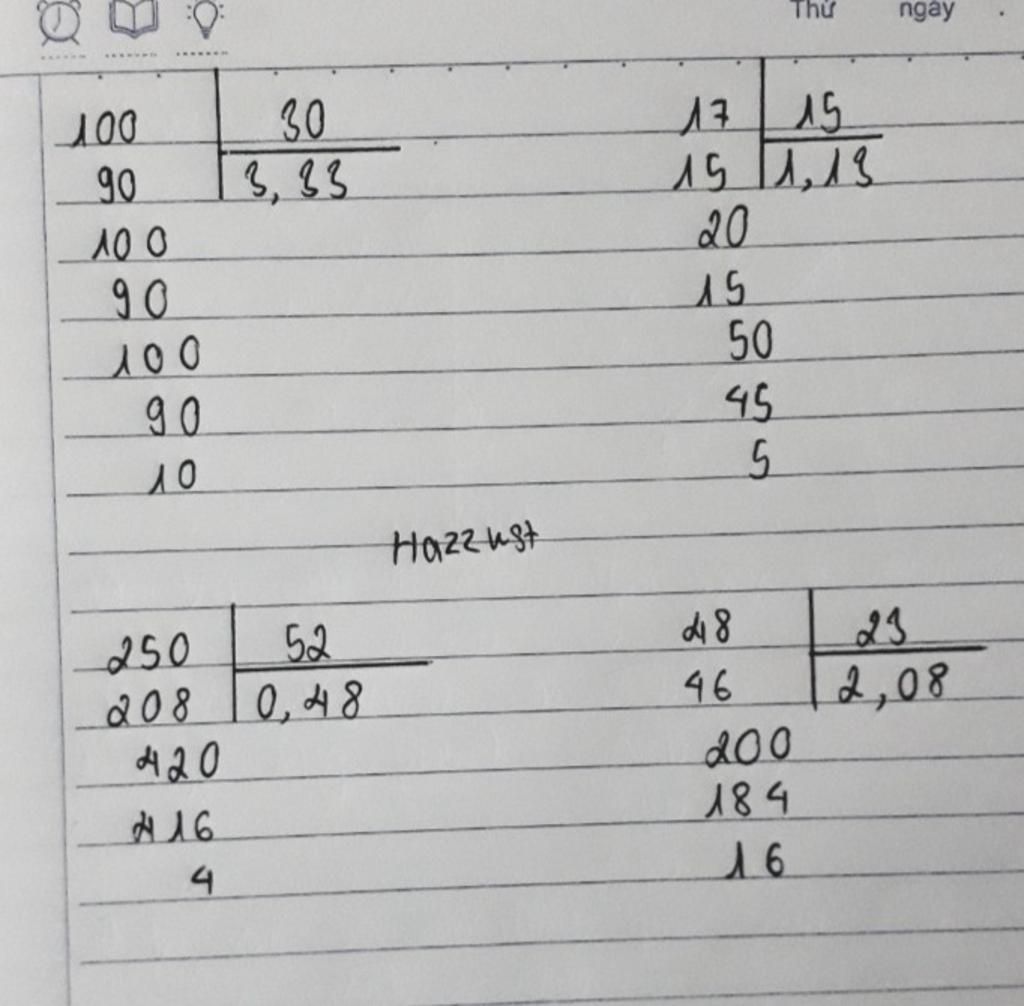 Thứ ngày .
100 30 17 15
90 3,33 15 1,13
100 20
90 15
100 50
90 45
10 5
Hazzust
250 52 48 23
208 0,48 46 2,08
420 200
416 184
4 16